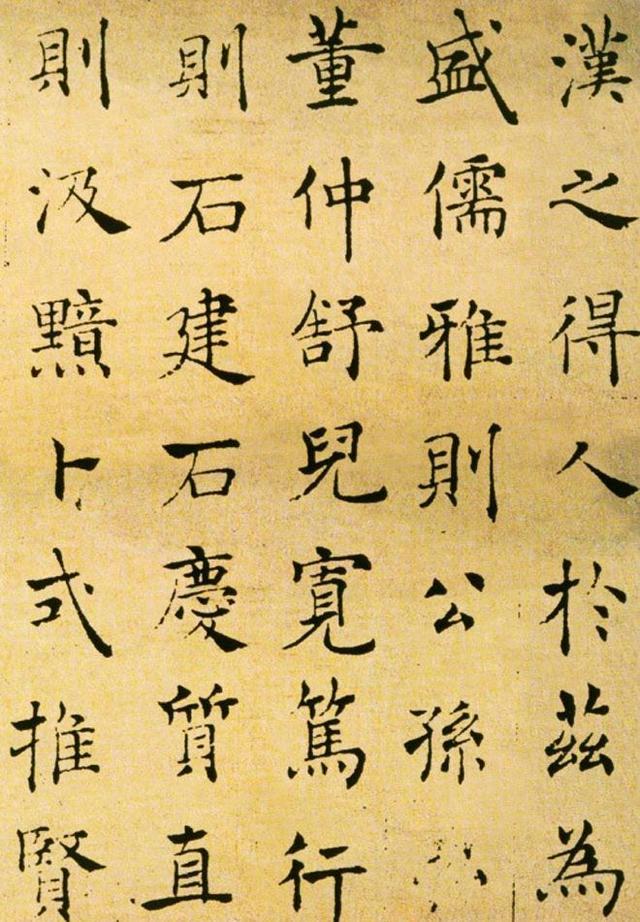 漢之得人於茲為
盛儒雅則公孫
董仲舒兒寬篤行
則石建石慶質直
則汲黯卜式推賢